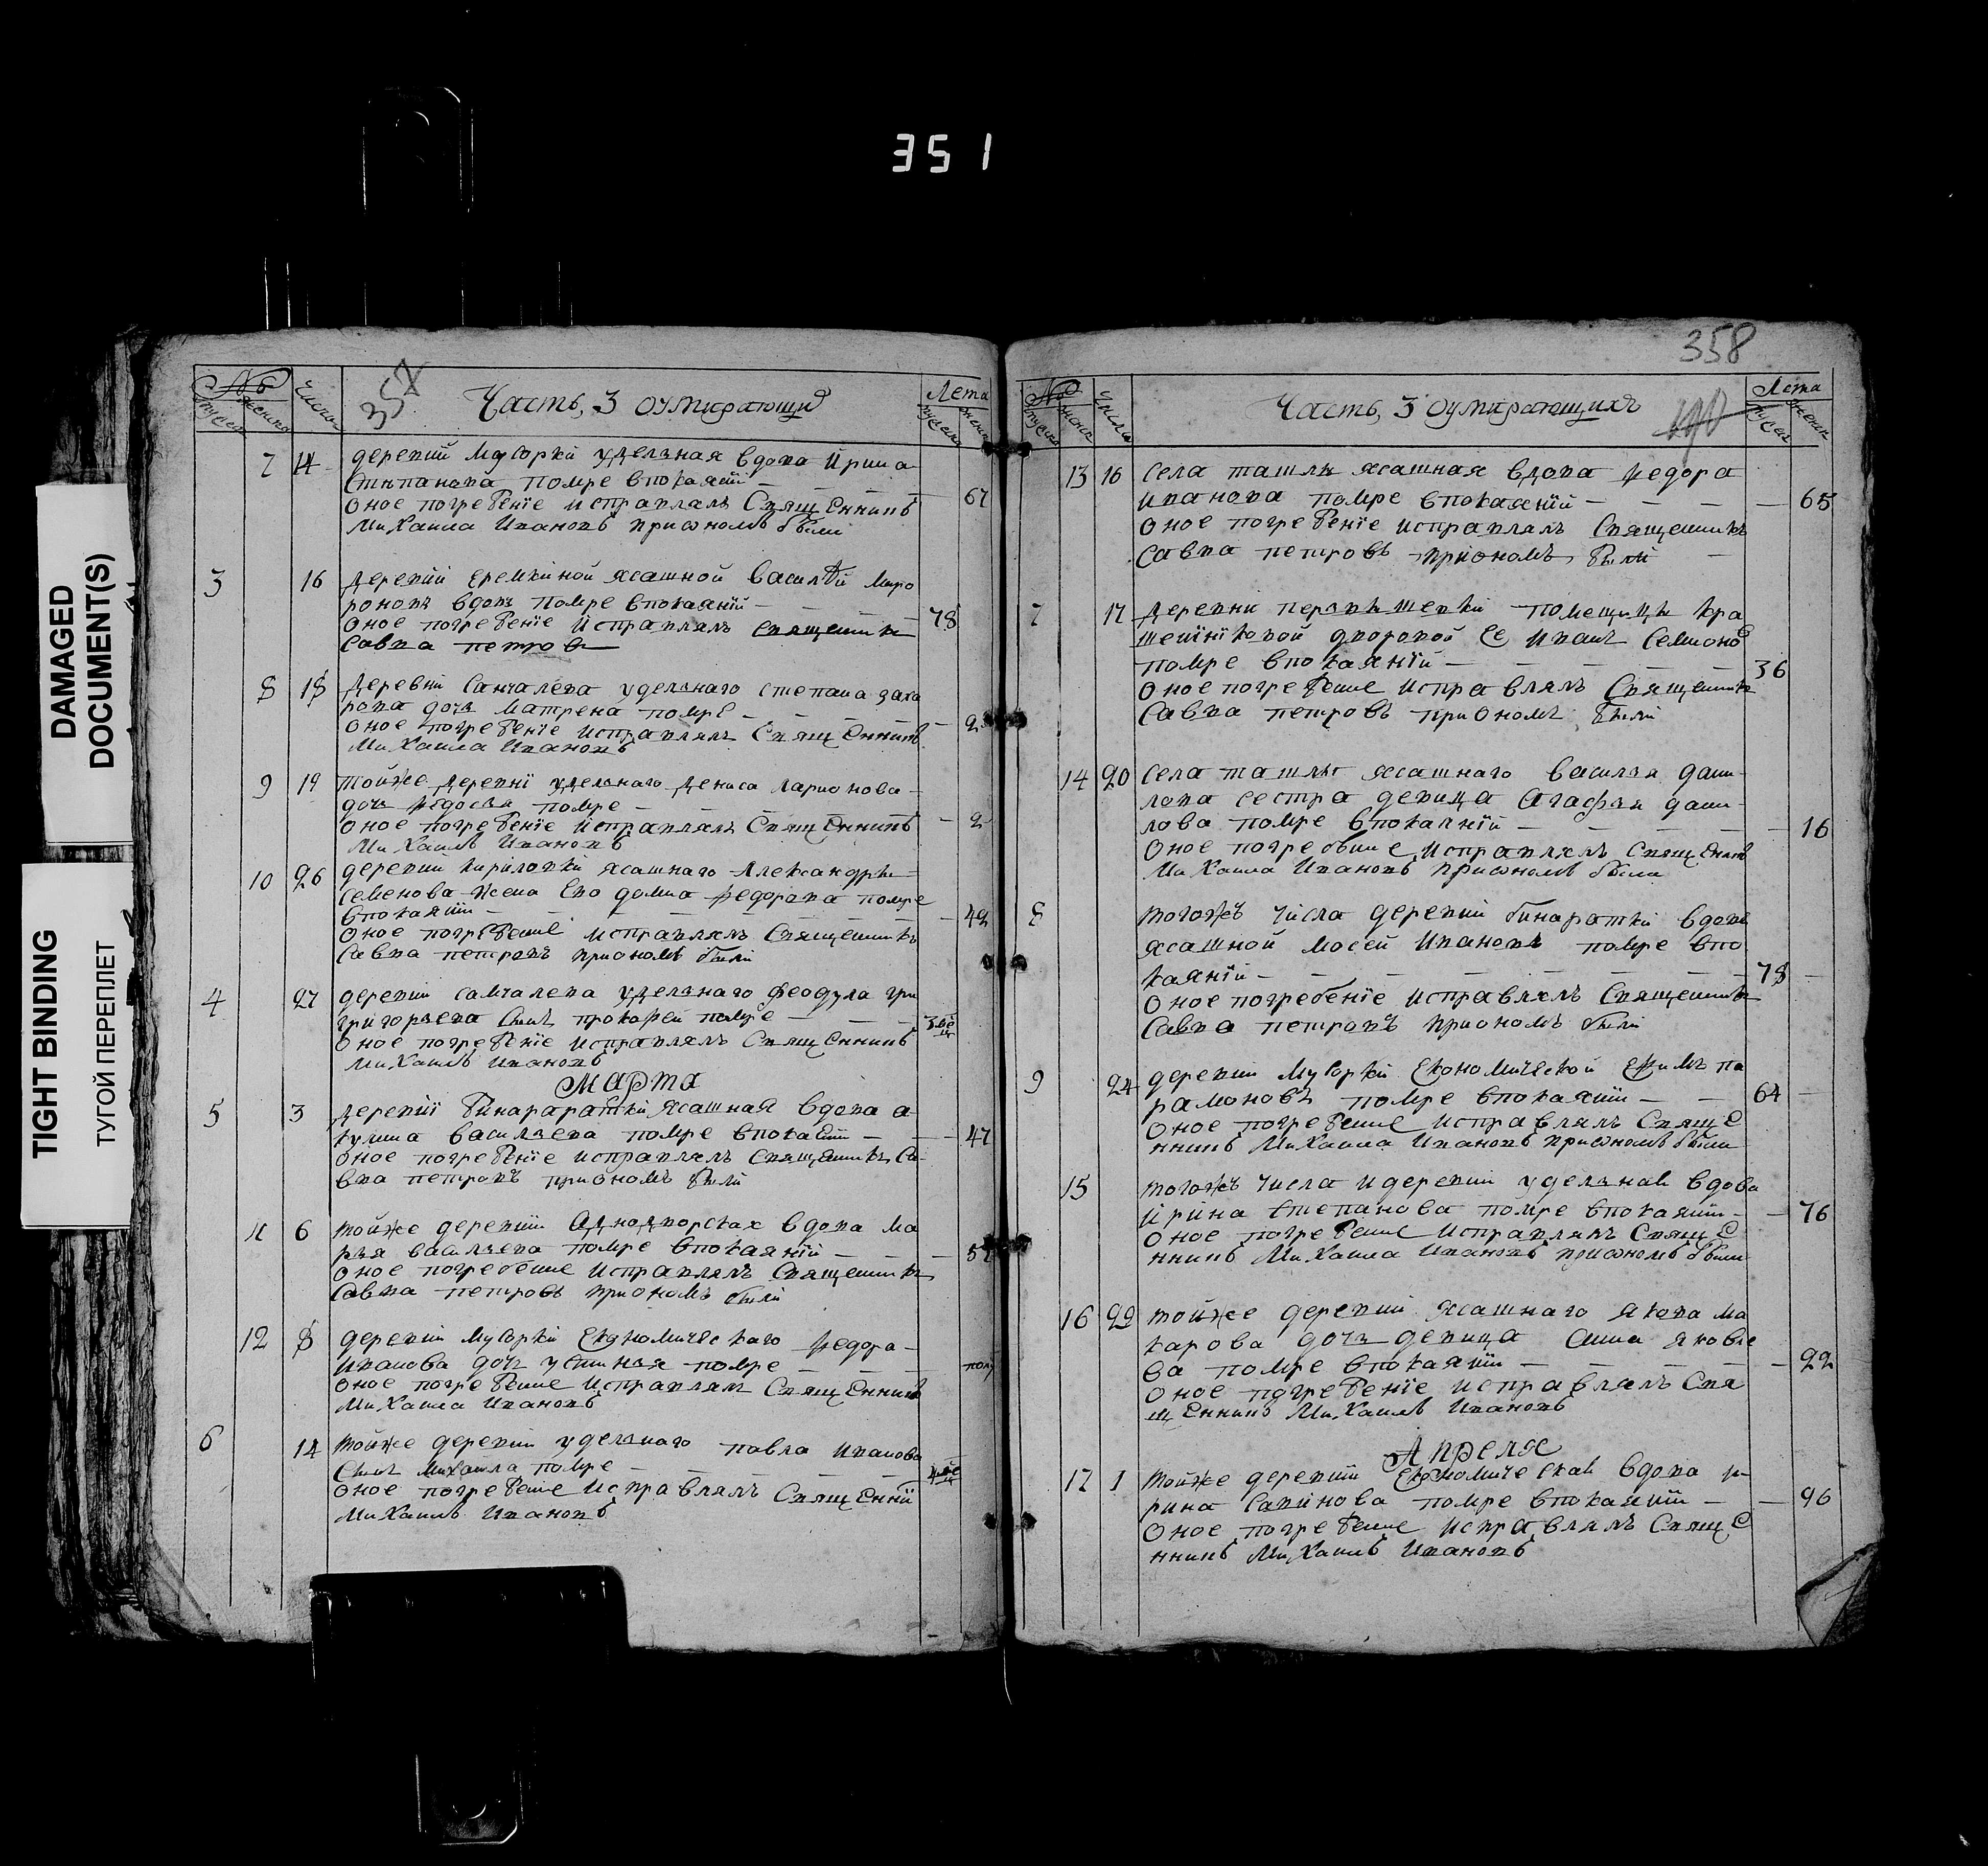 351
DAMAGED
DOCUMENT(S)
TIGHT BINDING
ТУГОЙ ПЕРЕПЛЕТ
357
№
Числа
Часть, 3 оумирающи
Лета
7 14 деревни Мусорки удельная вдова Ирина
Степанова помре впокаянїи
оное погребенїе исправлялъ Священникъ 67
Михаила Ивановъ приономъ были
3 16 деревни Еремкиной ясашной Василей Миро
роновъ вдовъ помре впокаянїи 78
оное погребенїе исправлялъ священникъ
Савва петровъ
8 18 деревни Санчалева удельнаго степана заха
рова дочь матрена помре
оное погребенїе исправлялъ Священникъ 2
Михаила Ивановъ
9 19 тойже деревнї удельнаго дениса ларионова
дочь федосья помре
оное погребенїе исправлялъ Священникъ 2
Михаилъ Ивановъ
10 26 деревни кириловки ясашнаго Александра
семенова жена Ево домна федорова помре
впокаянїи 42
оное погребенїе исправлялъ Священникъ
Савва петровъ приономъ были
4 27 деревни самчалева удельнаго феодула гри
григорьева сынъ прокофей помре
оное погребенїе исправлялъ Священникъ
Михаилъ Ивановъ
Марта
5 3 деревнїї Бинарарадки ясашная вдова а
кулина васильева помре впокаянїи 47
оное погребенїе исправлялъ священникъ Са
вва петровъ приономъ были
11 6 тойже деревни Аднодворская вдова ма
рья васильева помре впокаянїи
оное погребение исправлялъ Священникъ
Савва петровъ приономъ были
12 8 деревни Мусорки Економическаго федора
иванова дочь устинья помре пол
оное погребение исправлялъ Священникъ
Михаила Ивановъ
6 14 тойже деревни удельнаго павла иванова
сынъ Михаила помре
оное погребение исправлялъ Священнї
Михаилъ Ивановъ
358
190
№
Числа
Часть, 3 оумирающихъ
Лета
13 16 села ташлы ясашная вдова федора
иванова помре впокаянїи 65
оное погребенїе исправлялъ Священникъ
Савва петровъ приономъ были
7 17 деревни помещицы кра
шенїнїковой дворовой Ее иванъ Семионо
помре впокаянїи 36
оное погребение исправлялъ Священникъ
Савва петровъ приономъ были
14 20 села ташлы ясашнаго василья дани
лова сестра девица Агафья дани
лова помре впокаянїи 16
оное погребение исправлялъ Священникъ
Михаила Ивановъ приономъ были
8 тогожъ числа деревни бинаратки вдовъ
ясашной мосей Ивановъ помре впо
каянїи 78
оное погребенїе исправлялъ Священникъ
Савва петровъ приономъ были
9 24 деревни Мусорки Економической Ефимъ па
рамоновъ помре впокаянїи 64
оное погребение исправлялъ Свяще
нникъ Михаила Ивановъ приономъ были
15 тогожъ числа и деревни удельная вдова
ирина степанова помре впокаянїи 76
оное погребение исправлялъ Свяще
нникъ Михаила Ивановъ приономъ были
16 29 тойже деревни ясашнаго якова ма
карова дочь девица анна яковле
ва помре впокаянїи 22
оное погребенїе исправлялъ Свя
щенникъ Михаилъ Ивановъ
Апреля
17 1 тойже деревни Економическая вдова и
рина савинова помре впокаянїи 96
оное погребение исправлялъ Свяще
нникъ Михаилъ Ивановъ